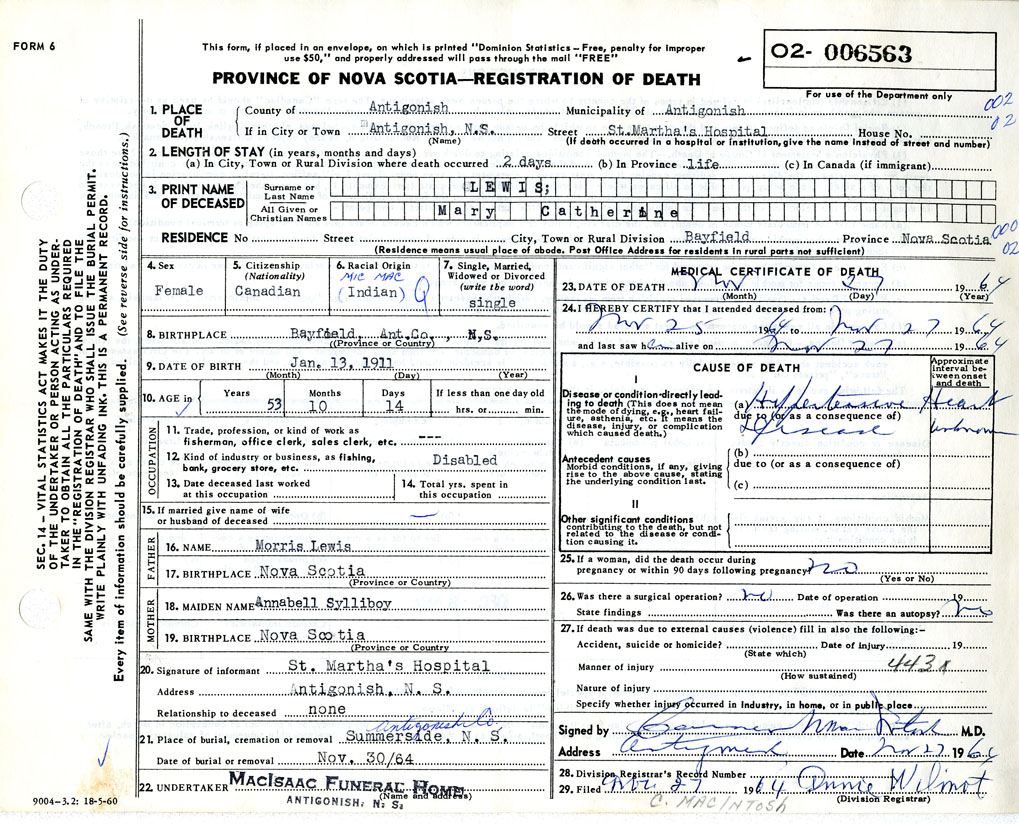 FORM 6
This form, if placed in an envelope, on which is printed "Dominion Statistics – Free, penalty for improper
use $50," and properly addressed will pass through the mail "FREE"
PROVINCE OF NOVA SCOTIA—REGISTRATION OF DEATH
02- 006563
For use of the Department only
002
02
1. PLACE OF DEATH
County of Antigonish Municipality of Antigonish
If in City or Town Antigonish, N.S. Street St.Martha's Hospital House No.
(Name) (If death occurred in a hospital or institution, give the name instead of street and number)
2. LENGTH OF STAY (in years, months and days)
(a) In City, Town or Rural Division where death occurred 2 days (b) In Province life (c) In Canada (if immigrant)
3. PRINT NAME OF DECEASED
Surname or Last Name LEWIS;
All Given or Christian Names Mary Catherine
RESIDENCE No Street City, Town or Rural Division Bayfield Province Nova Scotia
000
02
(Residence means usual place of abode. Post Office Address for residents in rural parts not sufficient)
4. Sex
Female
5. Citizenship
(Nationality)
Canadian
6. Racial Origin
MIC MAC
(Indian)
7. Single, Married,
Widowed or Divorced
(write the word)
single
8. BIRTHPLACE Bayfield, Ant.Co., N.S.
(Province or Country)
9. DATE OF BIRTH Jan. 13, 1911
(Month) (Day) (Year)
10. AGE in Years 53 Months 10 Days 14 If less than one day old
hrs. or min.
OCCUPATION
11. Trade, profession, or kind of work as
fisherman, office clerk, sales clerk, etc. ---
12. Kind of industry or business, as fishing,
bank, grocery store, etc. Disabled
13. Date deceased last worked
at this occupation
14. Total yrs. spent in
this occupation
15. If married give name of wife
or husband of deceased —
FATHER
16. NAME Morris Lewis
17. BIRTHPLACE Nova Scotia
(Province or Country)
MOTHER
18. MAIDEN NAME Annabell Sylliboy
19. BIRTHPLACE Nova Scotia
(Province or Country
20. Signature of informant St. Martha's Hospital
Address Antigonish, N. S.
Relationship to deceased none
Antigonish Co.
21. Place of burial, cremation or removal Summerside, N. S.
Date of burial or removal Nov. 30/64
22. UNDERTAKER MACISAAC FUNERAL HOME
(Name and address)
ANTIGONISH, N. S.
MEDICAL CERTIFICATE OF DEATH
23. DATE OF DEATH Nov 27 1964
(Month) (Day) (Year)
24. I HEREBY CERTIFY that I attended deceased from:
Nov 25 1964 to Nov 27 1964
and last saw h alive on Nov 27 1964
CAUSE OF DEATH
Approximate
interval be-
tween onset
and death
I
Disease or condition directly lead-
ing to death (This does not mean
the mode of dying, e.g., heart fail-
ure, asthenia, etc. It means the
disease, injury, or complication
which caused death.)
(a) Hypertensive Heart
due to (or as a consequence of)
Disease unknown
Antecedent causes
Morbid conditions, if any, giving
rise to the above cause, stating
the underlying condition last.
(b)
due to (or as a consequence of)
(c)
II
Other significant conditions
contributing to the death, but not
related to the disease or condi-
tion causing it.
25. If a woman, did the death occur during
pregnancy or within 90 days following pregnancy? no
(Yes or No)
26. Was there a surgical operation? no Date of operation 19
State findings Was there an autopsy? no
27. If death was due to external causes (violence) fill in also the following:–
Accident, suicide or homicide? Date of injury 19
(State which)
Manner of injury 443X
(How sustained)
Nature of injury
Specify whether injury occurred in Industry, in home, or in public place.
Signed by M.D.
Address Antigonish Date Nov 27 1964
28. Division Registrar's Record Number
29. Filed Nov. 27 1964 Annie Wilmot
(Division Registrar)
C. MACINTOSH
SEC. 14 – VITAL STATISTICS ACT MAKES IT THE DUTY
OF THE UNDERTAKER OR PERSON ACTING AS UNDER-
TAKER TO OBTAIN ALL THE PARTICULARS REQUIRED
IN THE "REGISTRATION OF DEATH" AND TO FILE THE
SAME WITH THE DIVISION REGISTRAR WHO SHALL ISSUE THE BURIAL PERMIT.
WRITE PLAINLY WITH UNFADING INK. THIS IS A PERMANENT RECORD.
Every item of information should be carefully supplied. (See reverse side for instructions.)
9004-3.2: 18-5-60